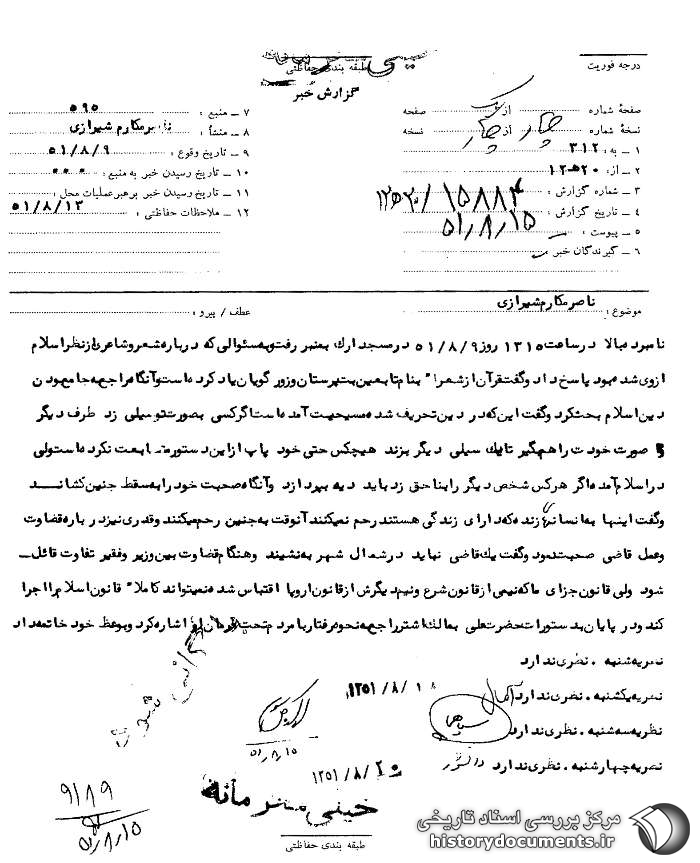 خیلی محرمانه
درجه فوریت
طبقه بندی حفاظتی
گزارش خبر
صفحهٔ شماره از یک صفحه
نسخهٔ شماره چهار از چهار نسخه
۱ ـ به : ۳۱۲
۲ ـ از: ۲۰ ه‍ ۱۲
۳ ـ شماره گزارش : ۱۵۸۸۴/ ۲۰ ه‍ ۱۲
۴ ـ تاریخ گزارش : ۵۱/۸/۱۵
۵ ـ پیوست :
۶ ـ گیرندگان خبر :
۷ ـ منبع : ۵۹۵
۸ ـ منشأ : ناصر مکارم شیرازی
۹ ـ تاریخ وقوع : ۵۱/۸/۹
۱۰ ـ تاریخ رسیدن خبر به منبع : ۰۰۰
۱۱ ـ تاریخ رسیدن خبر برهبر عملیات محل :
۱۲ ـ ملاحظات حفاظتی : ۵۱/۸/۱۳
موضوع : ناصر مکارم شیرازی
عطف / پیرو :
نامبرده بالا در ساعت ۱۳۱۵ روز ۵۱/۸/۹ در مسجد ارک بمنبر رفت و به سئوالی که درباره شعر و شاعری از نظر اسلام
از وی شده بود پاسخ داد و گفت قرآن از شعرا بنام تابعین بت پرستان وزور گویان یاد کرده است وآنگاه راجع به جامع بودن
دین اسلام بحث کرد و گفت این که در دین تحریف شده مسیحیت آمده است اگر کسی بصورت تو سیلی زد طرف دیگر
صورت خودت را هم بگیر تا یک سیلی دیگر بزند هیچکس حتی خود پاپ از این دستور متابعت نکرده است ولی
در اسلام آمده اگر هر کس شخص دیگر را بناحق زد باید دیه بپردازد وآنگاه صحبت خود را به سقط جنین کشانـــد
وگفت اینها به انسانهای زنده که دارای زندگی هستند رحم نمیکنند آنوقت به جنین رحم میکنند وقدری نیز درباره قضاوت
وعمل قاضی صحبت نمود و گفت یک قاضی نباید در شمال شهر به نشیند وهنگام قضاوت بین وزیر وفقیر تفاوت قائل ـ
شود ولی قانون جزای ما که نیمی از قانون شرع ونیم دیگرش از قانون اروپا اقتباس شده نمیتواند کاملاً قانون اسلام را اجرا
کند ودر پایان بدستورات حضرت علی به مالک اشتر راجع به نحوه رفتار با مردم تحت فرمان او اشاره کرد و بوعظ خود خاتمه داد
نظریه شنبه . نظری ندارد
نظریه یکشنبه . نظری ندارد ۱۳۵۱/۸/۱۸
نظریه سه شنبه . نظری ندارد
نظریه چهارشنبه . نظری ندارد
۱۳۵۱/۸/۲۰
۵۱/۸/۱۵
خیلی محرمانه
طبقه بندی حفاظتی
۹۱۸۹
۵۱/۸/۱۵
مرکز بررسی اسناد تاریخی
historydocuments.ir